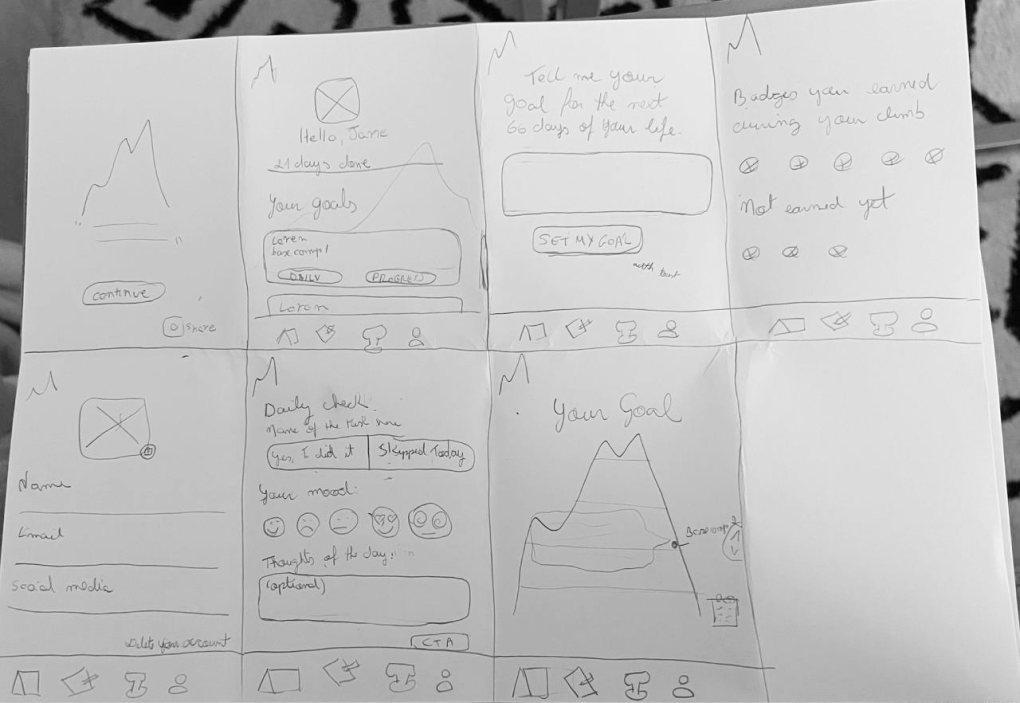 continue
Share
Hello, Jane
21 days done
Your goals
Loren
base camp 1
DAILY
PROGRESS
Loren
Tell me your
goal for the next
66 days of your life.
SET MY GOAL
Badges you earned
during your climb
Not earned yet
Name
Email
Social media
Delete your account
Daily check:
Name of the task here
Yes, I did it
Skipped Today
Your mood:
Thoughts of the day:
(optional)
CTA
Your Goal
Basecamp